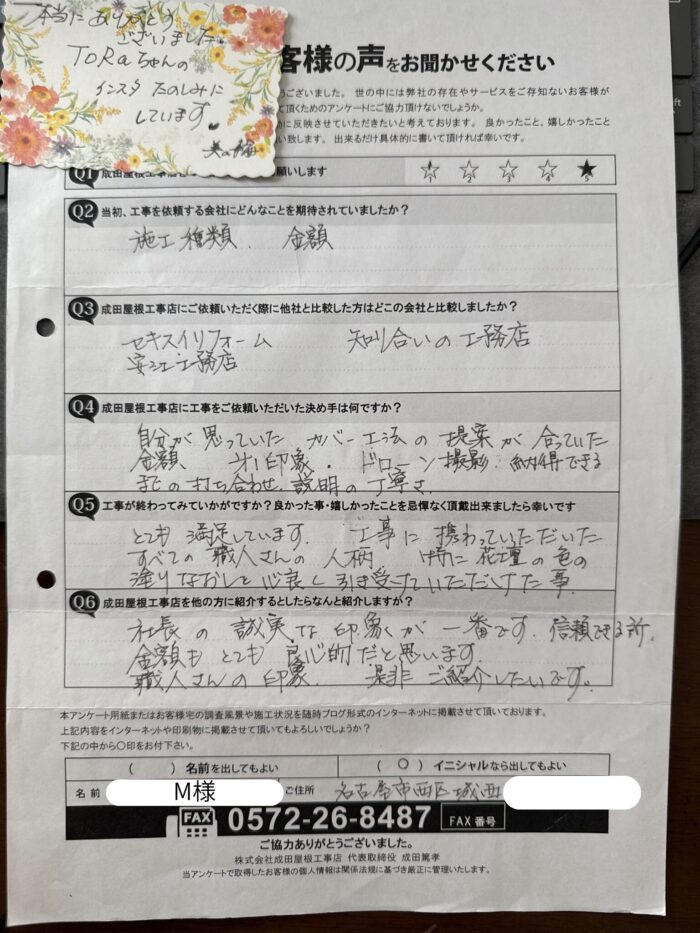 本当にありがとう
ございました。
TORaちゃんの
インスタ たのしみに
しています。
客様の声をお聞かせください
うございました。 世の中には弊社の存在やサービスをご存知ないお客様が
て頂くためのアンケートにご協力頂けないでしょうか。
に反映させていただきたいと考えております。 良かったこと、嬉しかったこと
い致します。 出来るだけ具体的に書いて頂ければ幸いです。
Q1 成田屋根工事店 願いします ☆1 ☆2 ☆3 ☆4 ★5
Q2 当初、工事を依頼する会社にどんなことを期待されていましたか?
施工種類、 金額
Q3 成田屋根工事店にご依頼いただく際に他社と比較した方はどこの会社と比較しましたか?
セキスイリフォーム 知り合いの工務店
安江工務店
Q4 成田屋根工事店に工事をご依頼いただいた決め手は何ですか?
自分が思っていた カバー工法の提案が合っていた
金額 オ1印象・ドローン撮影 納得できる
までの打ち合わせ、説明の丁寧さ
Q5 工事が終わってみていかがですか?良かった事・嬉しかったことを忌憚なく頂戴出来ましたら幸いです
とても満足しています。 工事に携わっていただいた
すべての職人さんの人柄 特に花壇の色の
塗りなおしを心良く引き受けていただけた事
Q6 成田屋根工事店を他の方に紹介するとしたらなんと紹介しますか?
社長の誠実な印象が一番です。信頼できる所。
金額もとても良心的だと思います。
職人さんの印象、 是非ご紹介したいです。
本アンケート用紙またはお客様宅の調査風景や施工状況を随時ブログ形式のインターネットに掲載させて頂いております。
上記内容をインターネットや印刷物に掲載させて頂いてもよろしいでしょうか?
下記の中から〇印をお付下さい。
( ) 名前を出してもよい ( ○ ) イニシャルなら出してもよい
名前 M様 ご住所 名古屋市西区城西
FAX 0572-26-8487 FAX番号
ご協力ありがとうございました。
株式会社成田屋根工事店 代表取締役 成田篤孝
当アンケートで取得したお客様の個人情報は関係法規に基づき厳正に管理いたします。